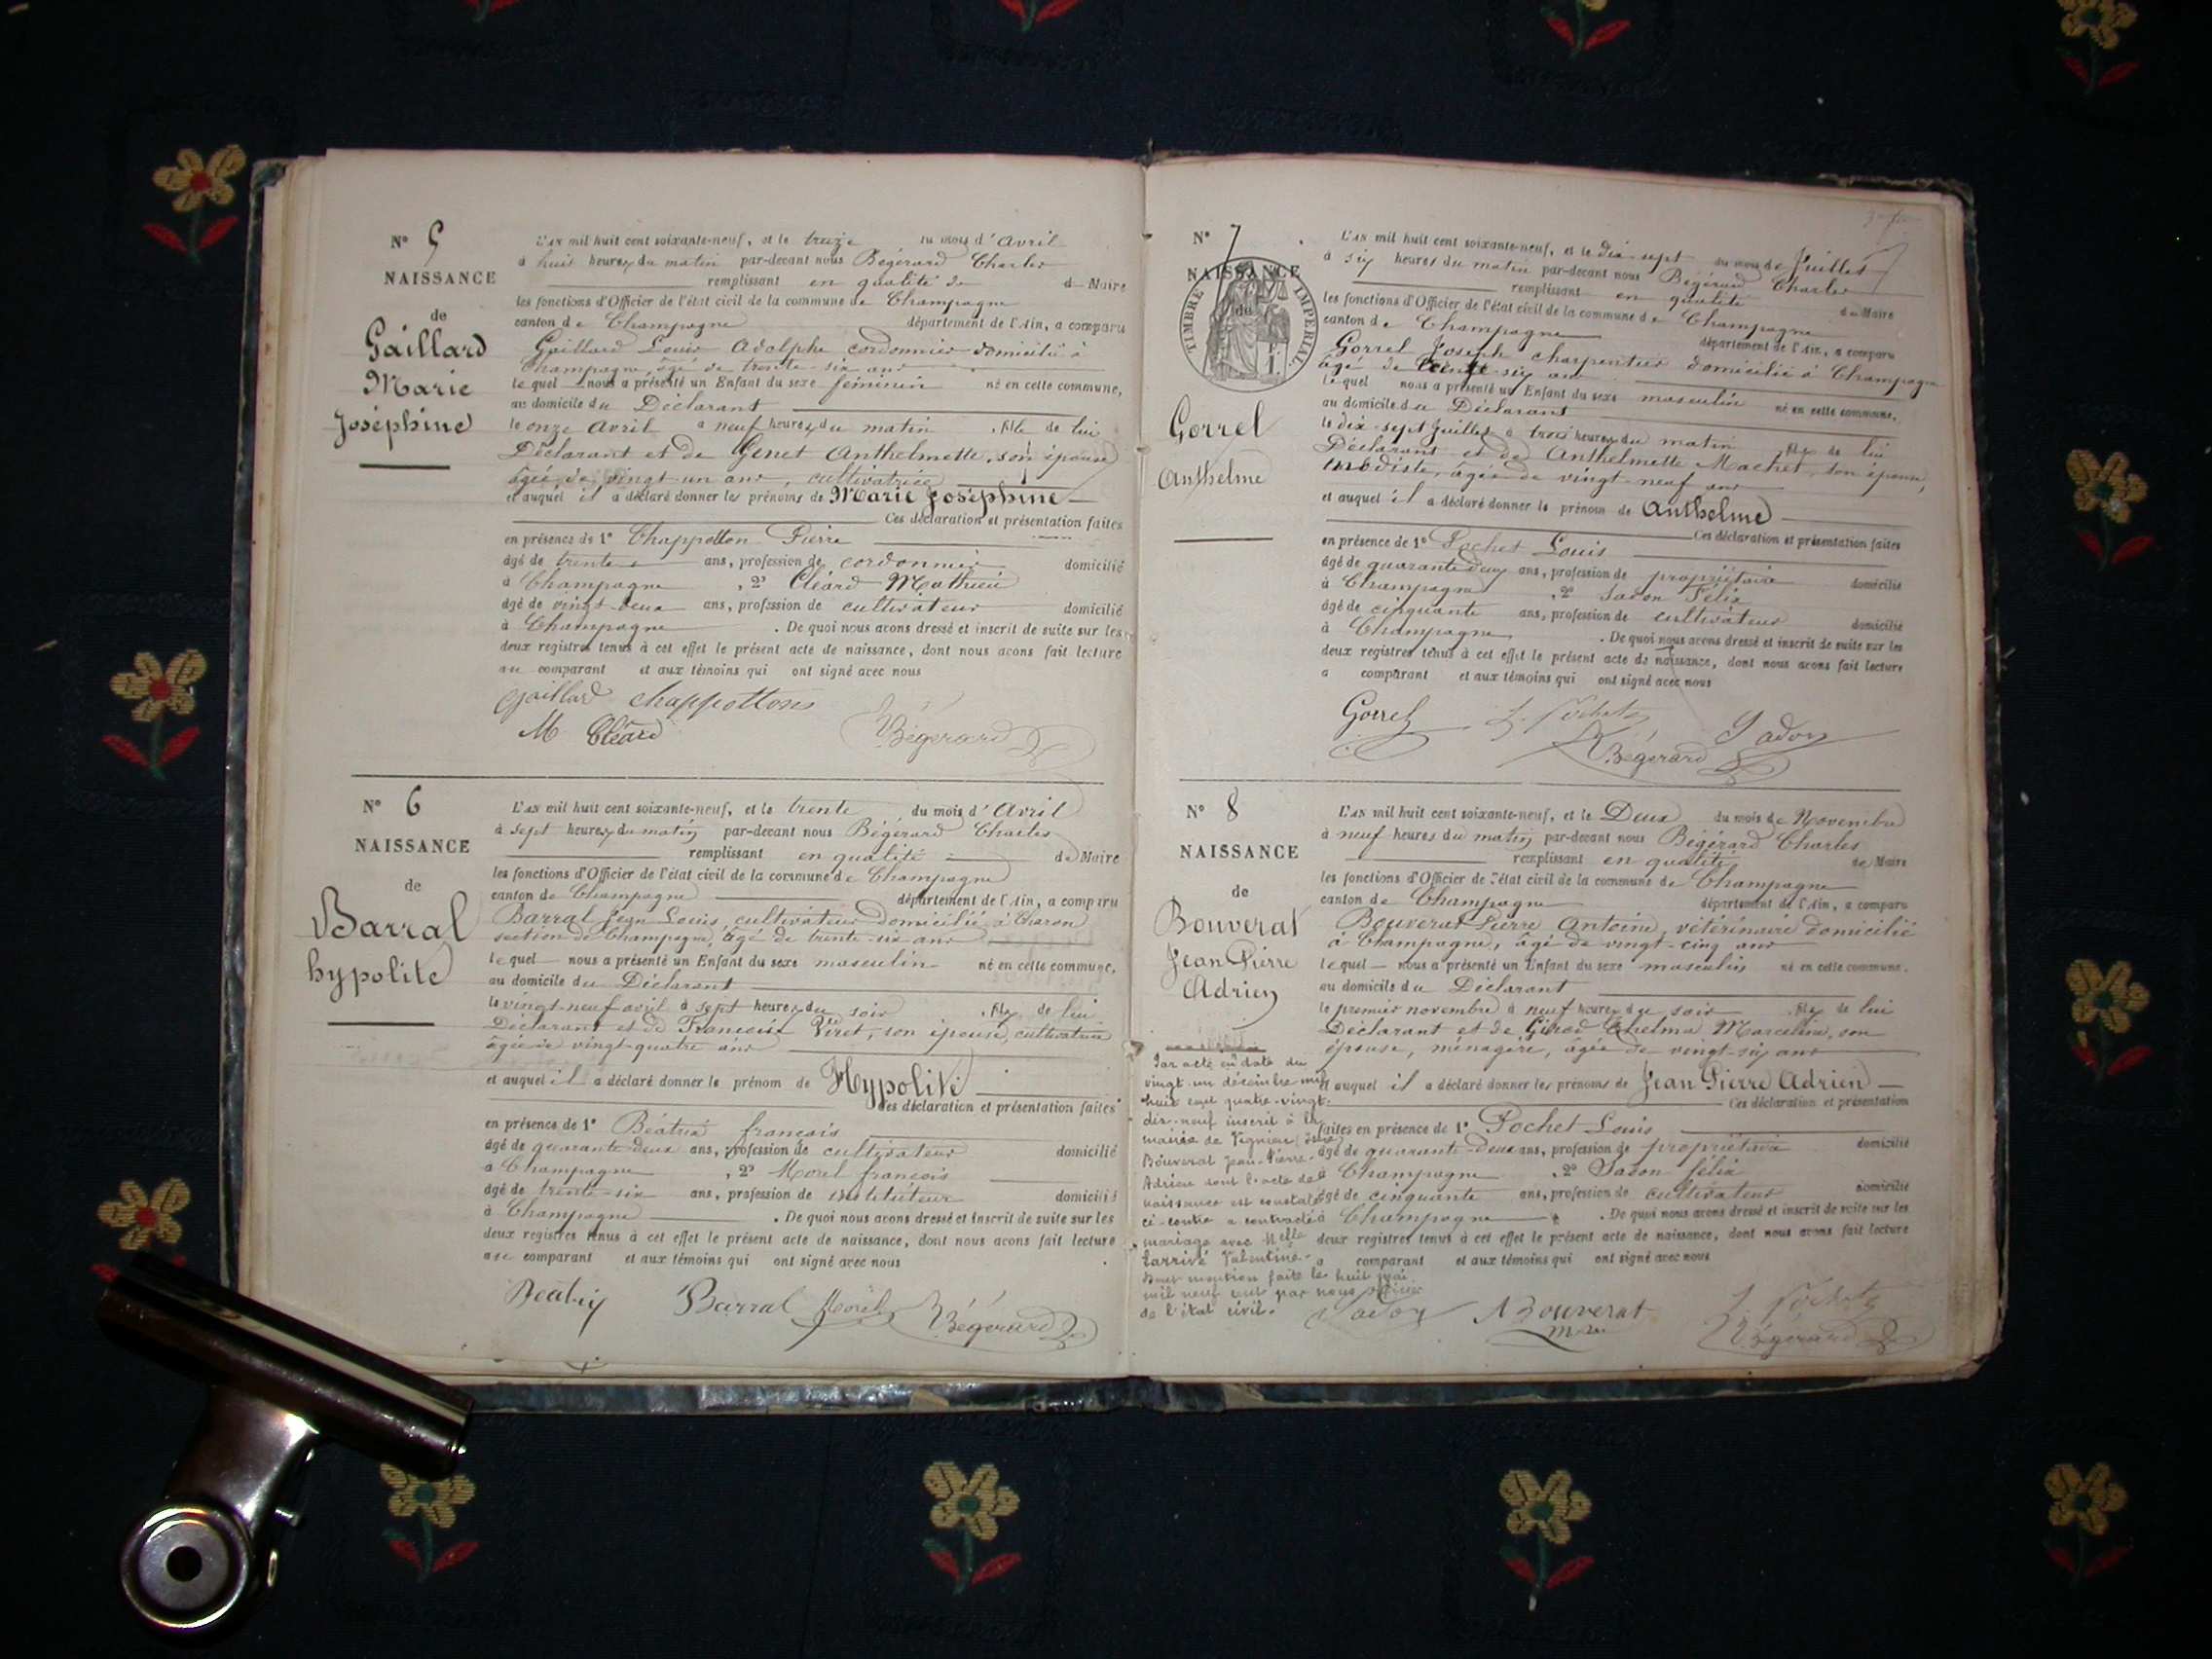 N° 5
NAISSANCE
de
Gaillard
Marie
Joséphine
L'an mil huit cent soixante-neuf, et le treize du mois d'Avril
à huit heures du matin par-devant nous Bégérard Charles
remplissant en qualité de Maire
les fonctions d'Officier de l'état civil de la commune de Champagne
canton de Champagne département de l'Ain, a comparu
Gaillard Louis Adolphe cordonnier domicilié à
Champagne, âgé de trente-six ans
lequel nous a présenté un Enfant du sexe féminin né en cette commune,
au domicile du Déclarant
le onze Avril à neuf heures du matin, fille de lui
Déclarant et de Genet Anthelmette, son épouse
âgée de vingt-un ans, cultivatrice
et auquel il a déclaré donner les prénoms de Marie Joséphine
Ces déclaration et présentation faites
en présence de 1° Chappotton Pierre
âgé de trente ans, profession de cordonnier domicilié
à Champagne, 2° Cléard Mathieu
âgé de vingt-deux ans, profession de cultivateur domicilié
à Champagne. De quoi nous avons dressé et inscrit de suite sur les
deux registres tenus à cet effet le présent acte de naissance, dont nous avons fait lecture
au comparant et aux témoins qui ont signé avec nous
Gaillard chappottons
M Cléard Bégérard
N° 6
NAISSANCE
de
Barral
hypolite
L'an mil huit cent soixante-neuf, et le trente du mois d'Avril
à sept heures du matin par-devant nous Bégérard Charles
remplissant en qualité de Maire
les fonctions d'Officier de l'état civil de la commune de Champagne
canton de Champagne département de l'Ain, a comparu
Barral Jean Louis, cultivateur domicilié à Charon
section de Champagne, âgé de trente-six ans
lequel nous a présenté un Enfant du sexe masculin né en cette commune,
au domicile du Déclarant
le vingt-neuf avril à sept heures du soir, fils de lui
Déclarant et de Françoise Viret, son épouse, cultivatrice
âgée de vingt-quatre ans
et auquel il a déclaré donner le prénom de Hypolite
Ces déclaration et présentation faites
en présence de 1° Béatrix françois
âgé de quarante-deux ans, profession de cultivateur domicilié
à Champagne, 2° Morel françois
âgé de trente-six ans, profession de instituteur domicilié
à Champagne. De quoi nous avons dressé et inscrit de suite sur les
deux registres tenus à cet effet le présent acte de naissance, dont nous avons fait lecture
au comparant et aux témoins qui ont signé avec nous
Béatrix Barral Morel Bégérard
N° 7
NAISSANCE
de
TIMBRE IMPERIAL
Gorrel
Anthelme
L'an mil huit cent soixante-neuf, et le dix-sept du mois de Juillet
à six heures du matin par-devant nous Bégérard Charles
remplissant en qualité de Maire
les fonctions d'Officier de l'état civil de la commune de Champagne
canton de Champagne département de l'Ain, a comparu
Gorrel Joseph charpentier domicilié à Champagne
âgé de trente-six ans
lequel nous a présenté un Enfant du sexe masculin né en cette commune,
au domicile du Déclarant
le dix-sept Juillet à trois heures du matin, fils de lui
Déclarant et de Anthelmette Machet, son épouse,
modiste, âgée de vingt-neuf ans
et auquel il a déclaré donner le prénom de Anthelme
Ces déclaration et présentation faites
en présence de 1° Pochet Louis
âgé de quarante-deux ans, profession de propriétaire domicilié
à Champagne, 2° Sadon Félix
âgé de cinquante ans, profession de cultivateur domicilié
à Champagne. De quoi nous avons dressé et inscrit de suite sur les
deux registres tenus à cet effet le présent acte de naissance, dont nous avons fait lecture
a comparant et aux témoins qui ont signé avec nous
Gorrel L. Pochet Sadon
Bégérard
N° 8
NAISSANCE
de
Bouverat
Jean Pierre
Adrien
L'an mil huit cent soixante-neuf, et le Deux du mois de Novembre
à neuf heures du matin par-devant nous Bégérard Charles
remplissant en qualité de Maire
les fonctions d'Officier de l'état civil de la commune de Champagne
canton de Champagne département de l'Ain, a comparu
Bouverat Pierre Antoine, vétérinaire domicilié
à Champagne, âgé de vingt-cinq ans
lequel nous a présenté un Enfant du sexe masculin né en cette commune,
au domicile du Déclarant
le premier novembre à neuf heures du soir, fils de lui
Déclarant et de Marceline, son
épouse, ménagère, âgée de vingt-six ans
et auquel il a déclaré donner les prénoms de Jean Pierre Adrien
Ces déclaration et présentation
faites en présence de 1° Pochet Louis
âgé de quarante-deux ans, profession de propriétaire domicilié
à Champagne, 2° Sadon félix
âgé de cinquante ans, profession de cultivateur domicilié
à Champagne. De quoi nous avons dressé et inscrit de suite sur les
deux registres tenus à cet effet le présent acte de naissance, dont nous avons fait lecture
a comparant et aux témoins qui ont signé avec nous
Sadon Bouverat L. Pochet
Bégérard
Par acte en date du
vingt-un décembre mil
huit cent quatre-vingt-
dix-neuf inscrit à la
mairie de Vignieu (Isère)
Bouverat Jean-Pierre-
Adrien dont l'acte de
naissance est constaté
ci-contre a contracté
mariage avec Melle
Larrivé Valentine.
Dont mention faite le huit mai
mil neuf cent par nous officier
de l'état civil.